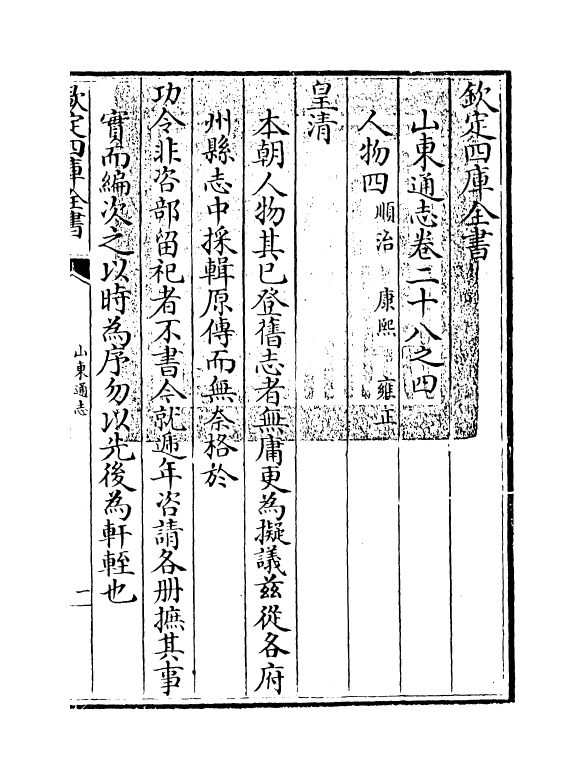 欽定四庫全書
山東通志卷二十八之四
人物四順治 康熙 雍正
皇清
本朝人物其已登舊志者無庸更為擬議兹從各府
州縣志中採輯原傳而無奈格於
功令非咨部留祀者不書今就遞年咨請各册摭其事
實而編次之以時為序勿以先後為軒輊也
欽定四庫全書
山東通志
一